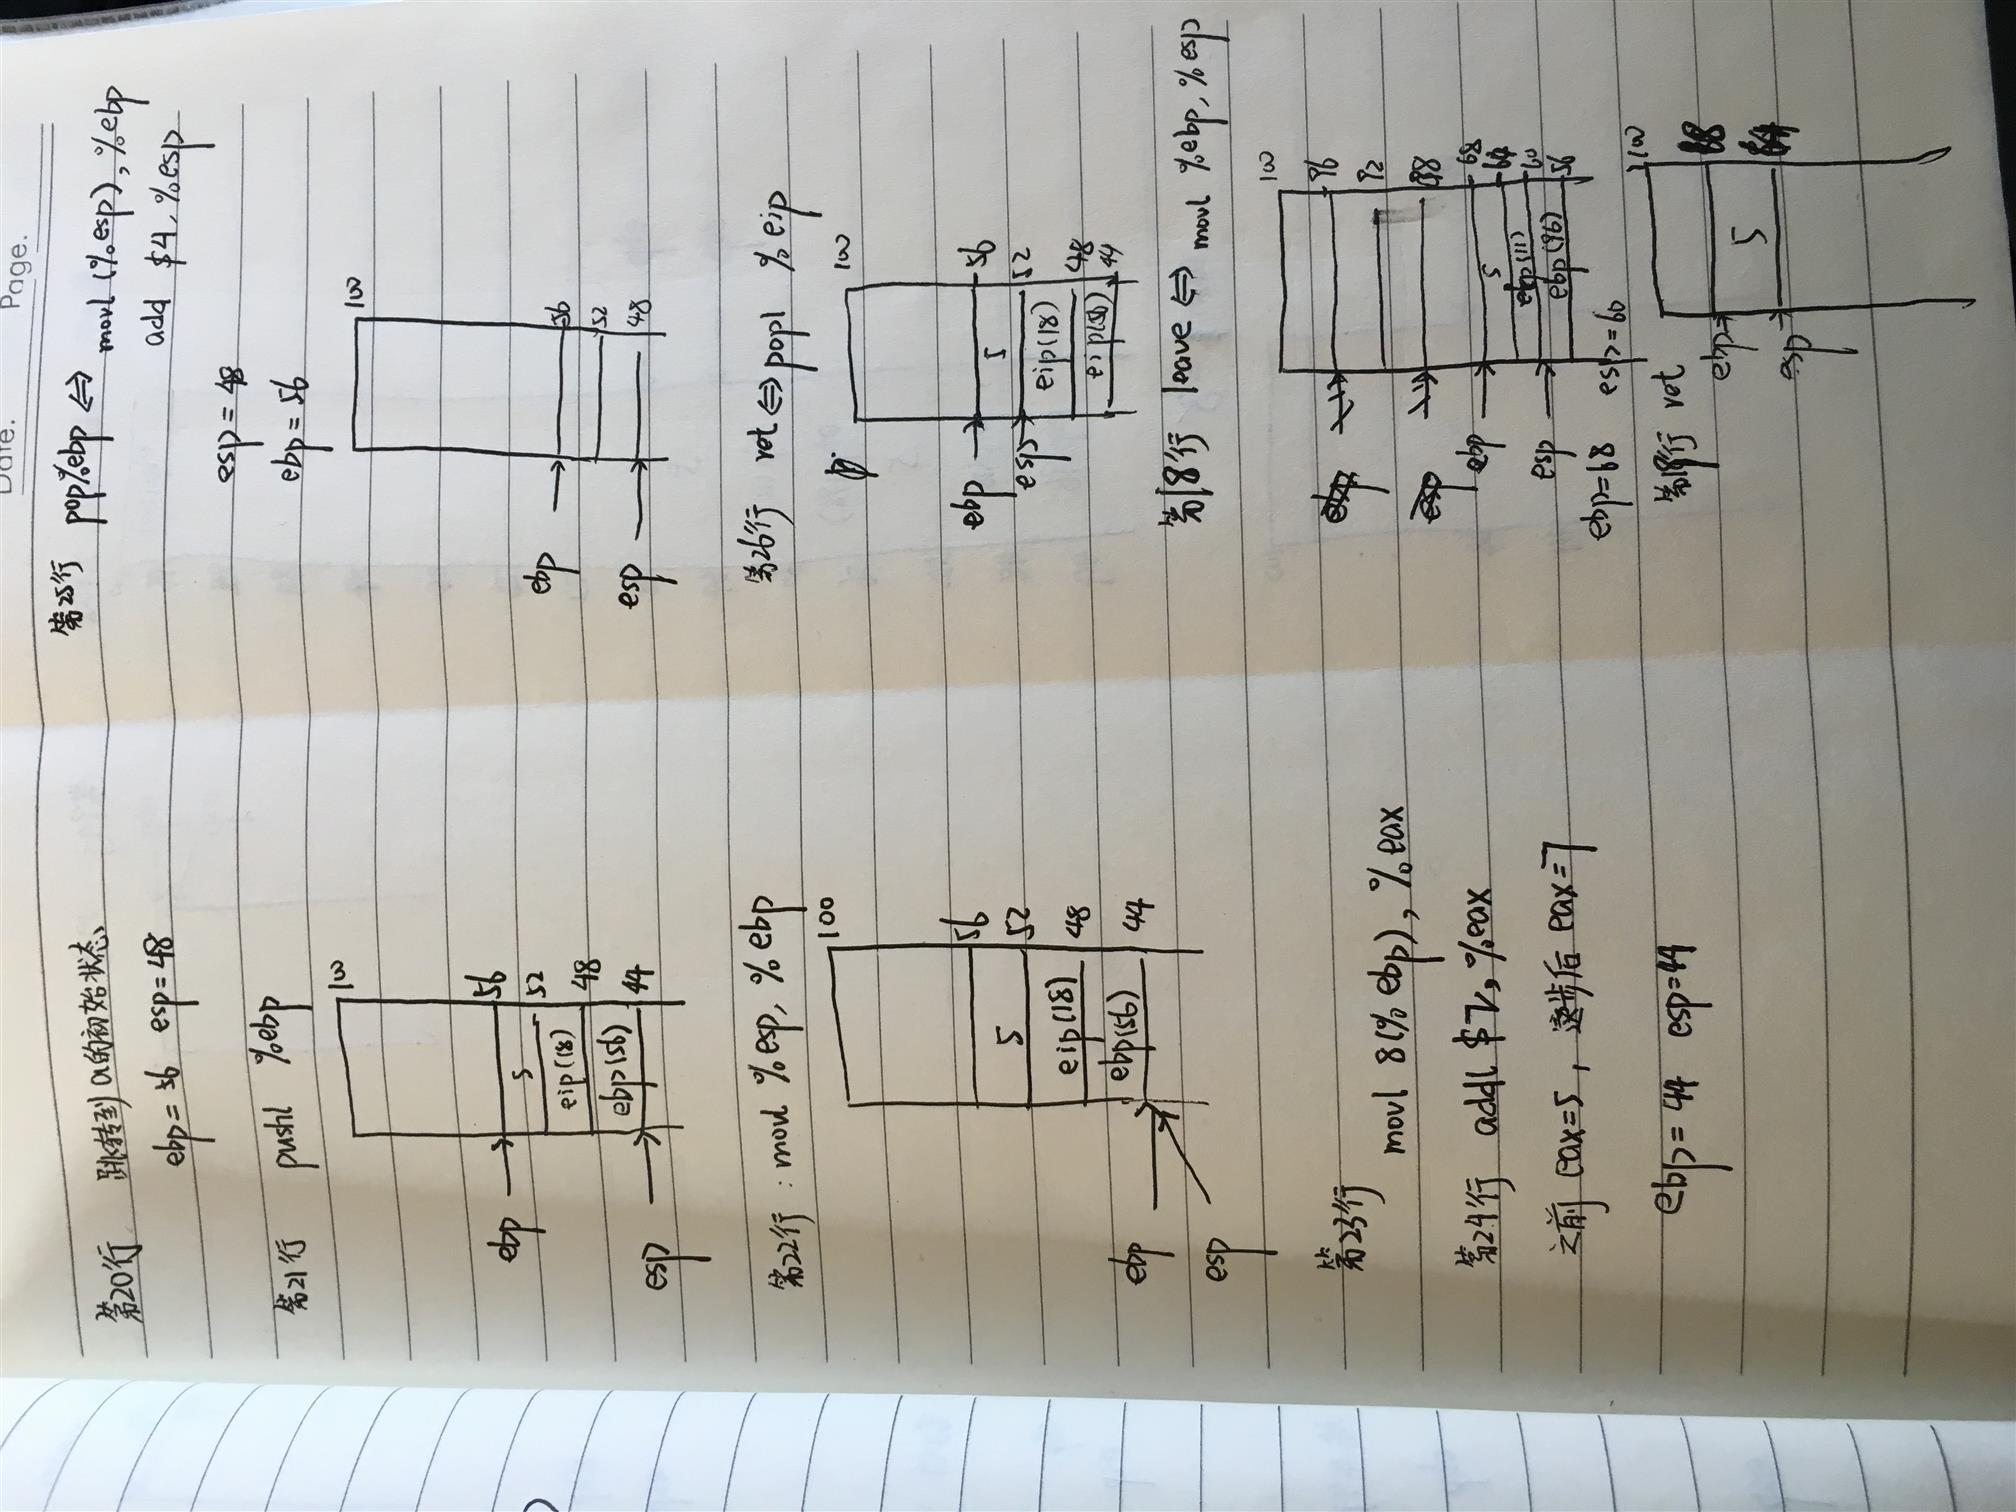 Date.
Page.
第20行 跳转到a的初始状态
ebp=56 esp=48
第21行 pushl %ebp
100
56
5
52
eip(18)
48
ebp(56)
44
ebp
esp
第22行:movl %esp, %ebp
100
56
5
52
eip(18)
48
ebp(56)
44
ebp
esp
第23行 movl 8(%ebp), %eax
第24行 addl $2, %eax
之前eax=5, 这步后eax=7
ebp=44 esp=44
第25行 pop%ebp ⇔ movl (%esp), %ebp
add $4, %esp
esp=48
ebp=56
100
56
52
48
ebp
esp
第26行 ret ⇔ popl %eip
100
56
5
52
eip(18)
48
44
ebp
esp
第18行 leave ⇔ movl %ebp, %esp
100
96
92
88
68
5
64
60
ebp(96)
56
ebp
esp
ebp=68 esp=60
第18行 ret
100
5
ebp
esp